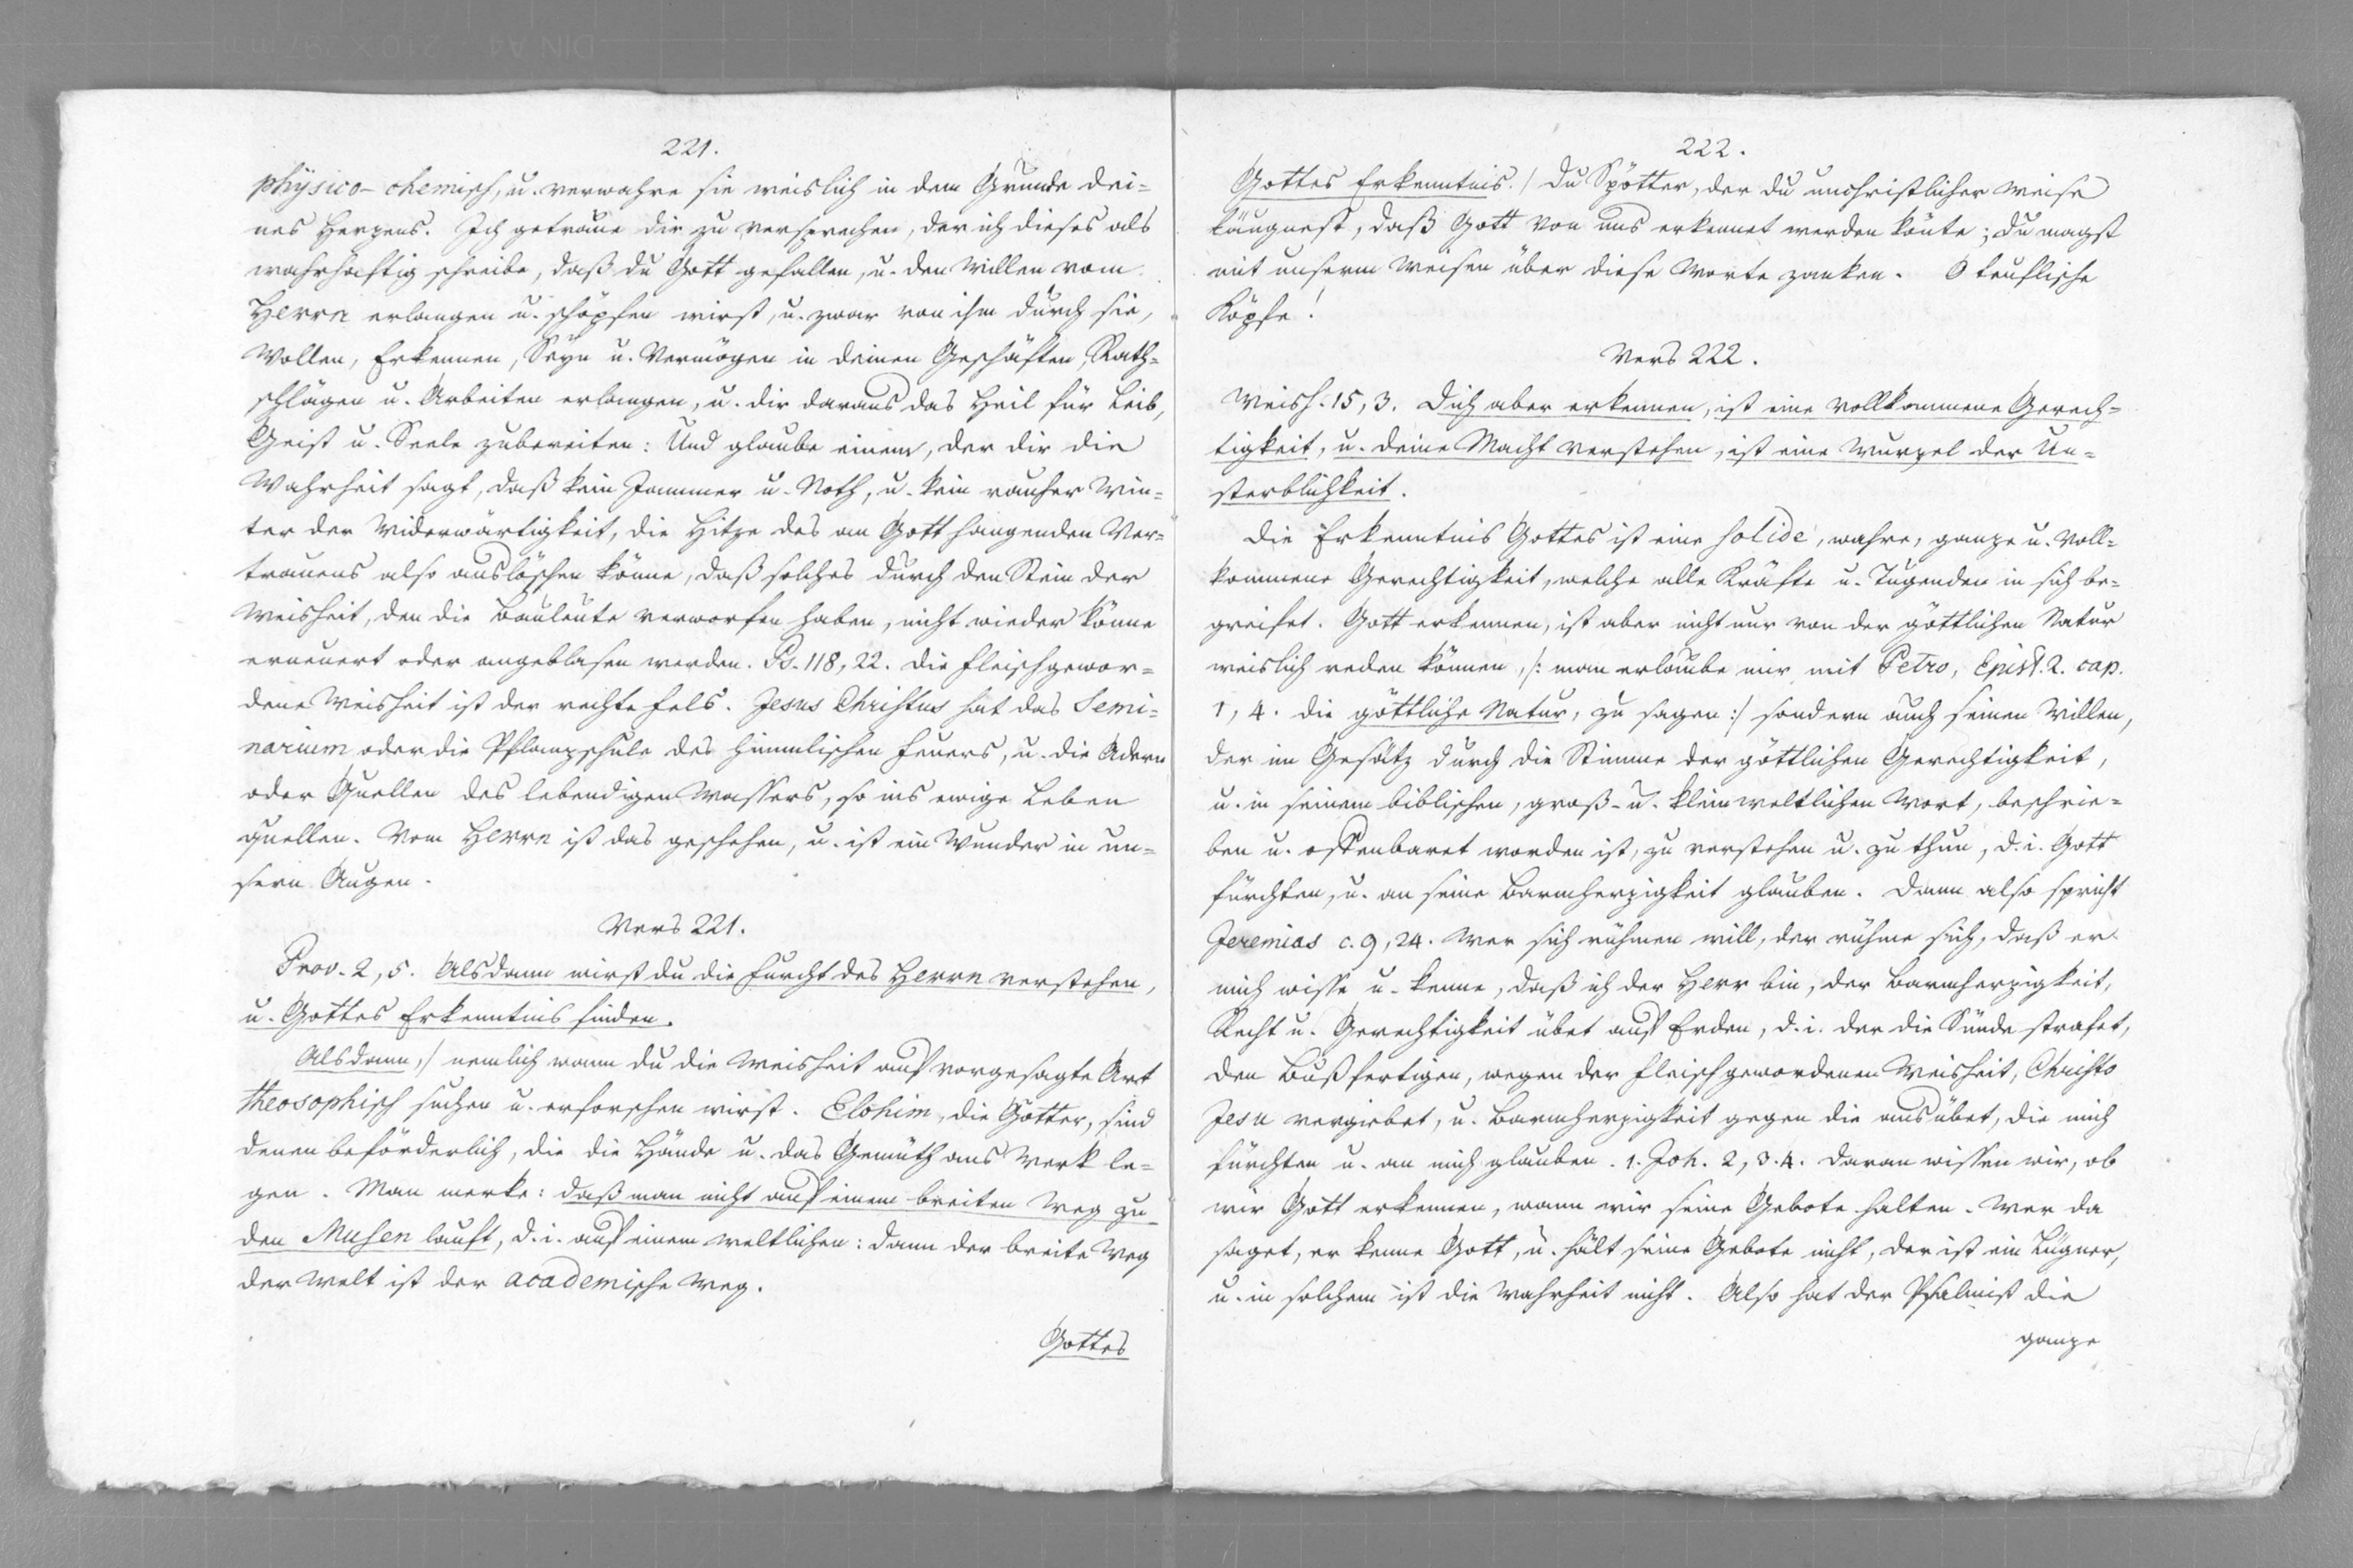 221.
physico-chemisch, u. verwahre sie weislich in dem Grunde dei-
nes Herzens. Ich getraue dir zu versprechen, der ich dieses als
wahrhaftig schreibe, daß du Gott gefallen, u. den Willen vom
Herrn erlangen u. schöpfen wirst, u. zwar von ihm durch sie,
Wollen, Erkennen, Seyn u. Vermögen in deinen Geschäften, Rath-
schlägen u. Arbeiten erlangen, u. dir daraus das Heil für Leib,
Geist u. Seele zubereiten: Und glaube einem, der dir die
Wahrheit sagt, daß kein Jammer u. Noth, u. kein rauher Win-
ter der Widerwärtigkeit, die Hitze des an Gott hangenden Ver-
trauens also auslöschen könne, daß solches durch den Stein der
Weisheit, den die Bauleute verworfen haben, nicht wieder könne
erneuert oder angeblasen werden. Ps. 118, 22. Die fleischgewor-
dene Weisheit ist der rechte Fels. Jesus Christus hat das Semi-
narium oder die Pflanzschule des himmlischen Feuers, u. die Adern
oder Quellen des lebendigen Wassers, so ins ewige Leben
quellen. Vom Herrn ist das geschehen, u. ist ein Wunder in un-
sern Augen.
Vers 221.
Prov. 2, 5. Alsdann wirst du die Furcht des Herrn verstehen,
u. Gottes Erkenntnis finden.
Alsdann,/ nemlich wann du die Weisheit auf vorgesagte Art
theosophisch suchen u. erforschen wirst. Elohim, die Götter, sind
denen beförderlich, die die Hände u. das Gemüth ans Werk le-
gen. Man merke: daß man nicht auf einem breiten Weg zu
den Musen lauft, d. i. auf einem weltlichen: dann der breite Weg
der Welt ist der academische Weg.
Gottes
222.
Gottes Erkenntnis./ Du Spötter, der du unchristlicher Weise
läugnest, daß Gott von uns erkennet werden könte; du magst
mit unserm Weisen über diese Worte zanken. O teuflische
Köpfe!
Vers 222.
Weish. 15, 3. Dich aber erkennen, ist eine vollkommene Gerech-
tigkeit, u. deine Macht verstehen, ist eine Wurzel der Un-
sterblichkeit.
Die Erkenntnis Gottes ist eine solide, wahre, ganze u. voll-
kommene Gerechtigkeit, welche alle Kräfte u. Tugenden in sich be-
greifet. Gott erkennen, ist aber nicht nur von der göttlichen Natur
weislich reden können, /: man erlaube mir mit Petro, Epist. 2. cap.
1, 4. die göttliche Natur, zu sagen :/ sondern auch seinen Willen,
der im Gesätz durch die Stimme der göttlichen Gerechtigkeit,
u. in seinem biblischen, groß- u. kleinweltlichen Wort, beschrie-
ben u. offenbaret worden ist, zu verstehen u. zu thun, d. i. Gott
fürchten, u. an seine Barmherzigkeit glauben. Dann also spricht
Jeremias c. 9, 24. Wer sich rühmen will, der rühme sich, daß er
mich wisse u. kenne, daß ich der Herr bin, der Barmherzigkeit,
Recht u. Gerechtigkeit übet auf Erden, d. i. der die Sünde strafet,
den Bußfertigen, wegen der fleischgewordenen Weisheit, Christo
Jesu vergiebet, u. Barmherzigkeit gegen die ausübet, die mich
fürchten u. an mich glauben. 1. Joh. 2, 3. 4. Daran wissen wir, ob
wir Gott erkennen, wann wir seine Gebote halten. Wer da
saget, er kenne Gott, u. hält seine Gebote nicht, der ist ein Lügner,
u. in solchem ist die Wahrheit nicht. Also hat der Psalmist die
ganze